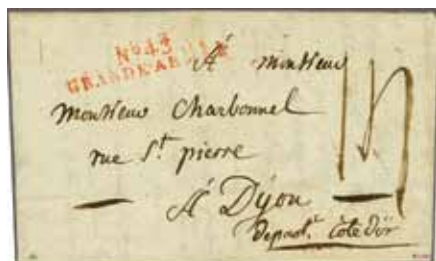 No 43
GRANDE ARMÉE
À monsieur
monsieur Charbonnel
rue St. pierre
À Dijon
depart.t Côte d'or